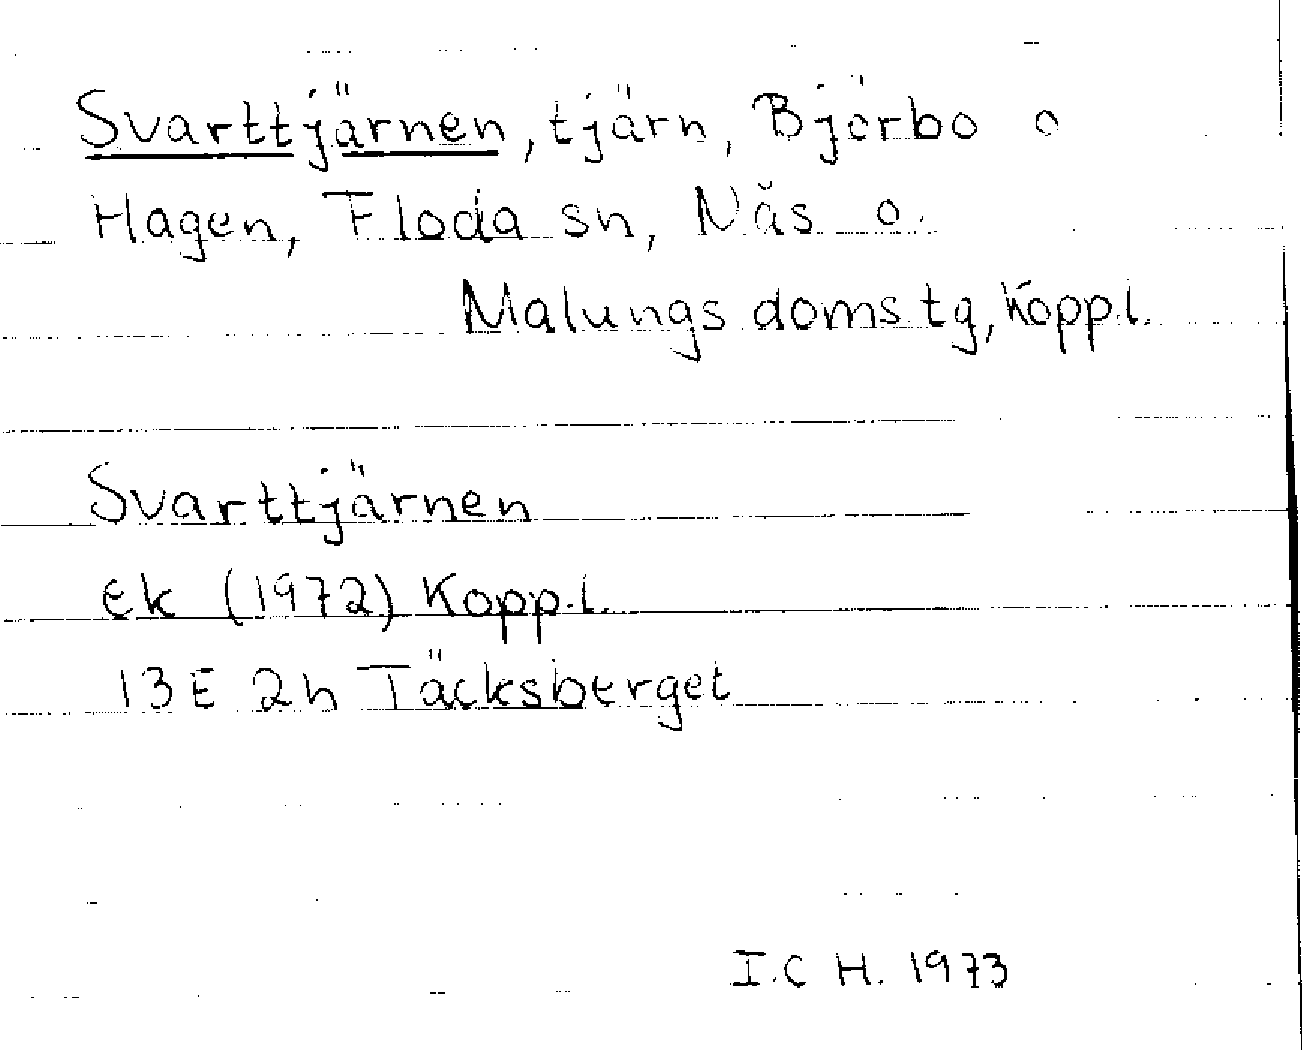 Svarttjärnen, tjärn, Björbo o
Hagen, Floda sn, Nås o.
Malungs domstg, Kopp.l.
Svarttjärnen
ek (1972) Kopp.l.
13E 2h Täcksberget
I.C H. 1973